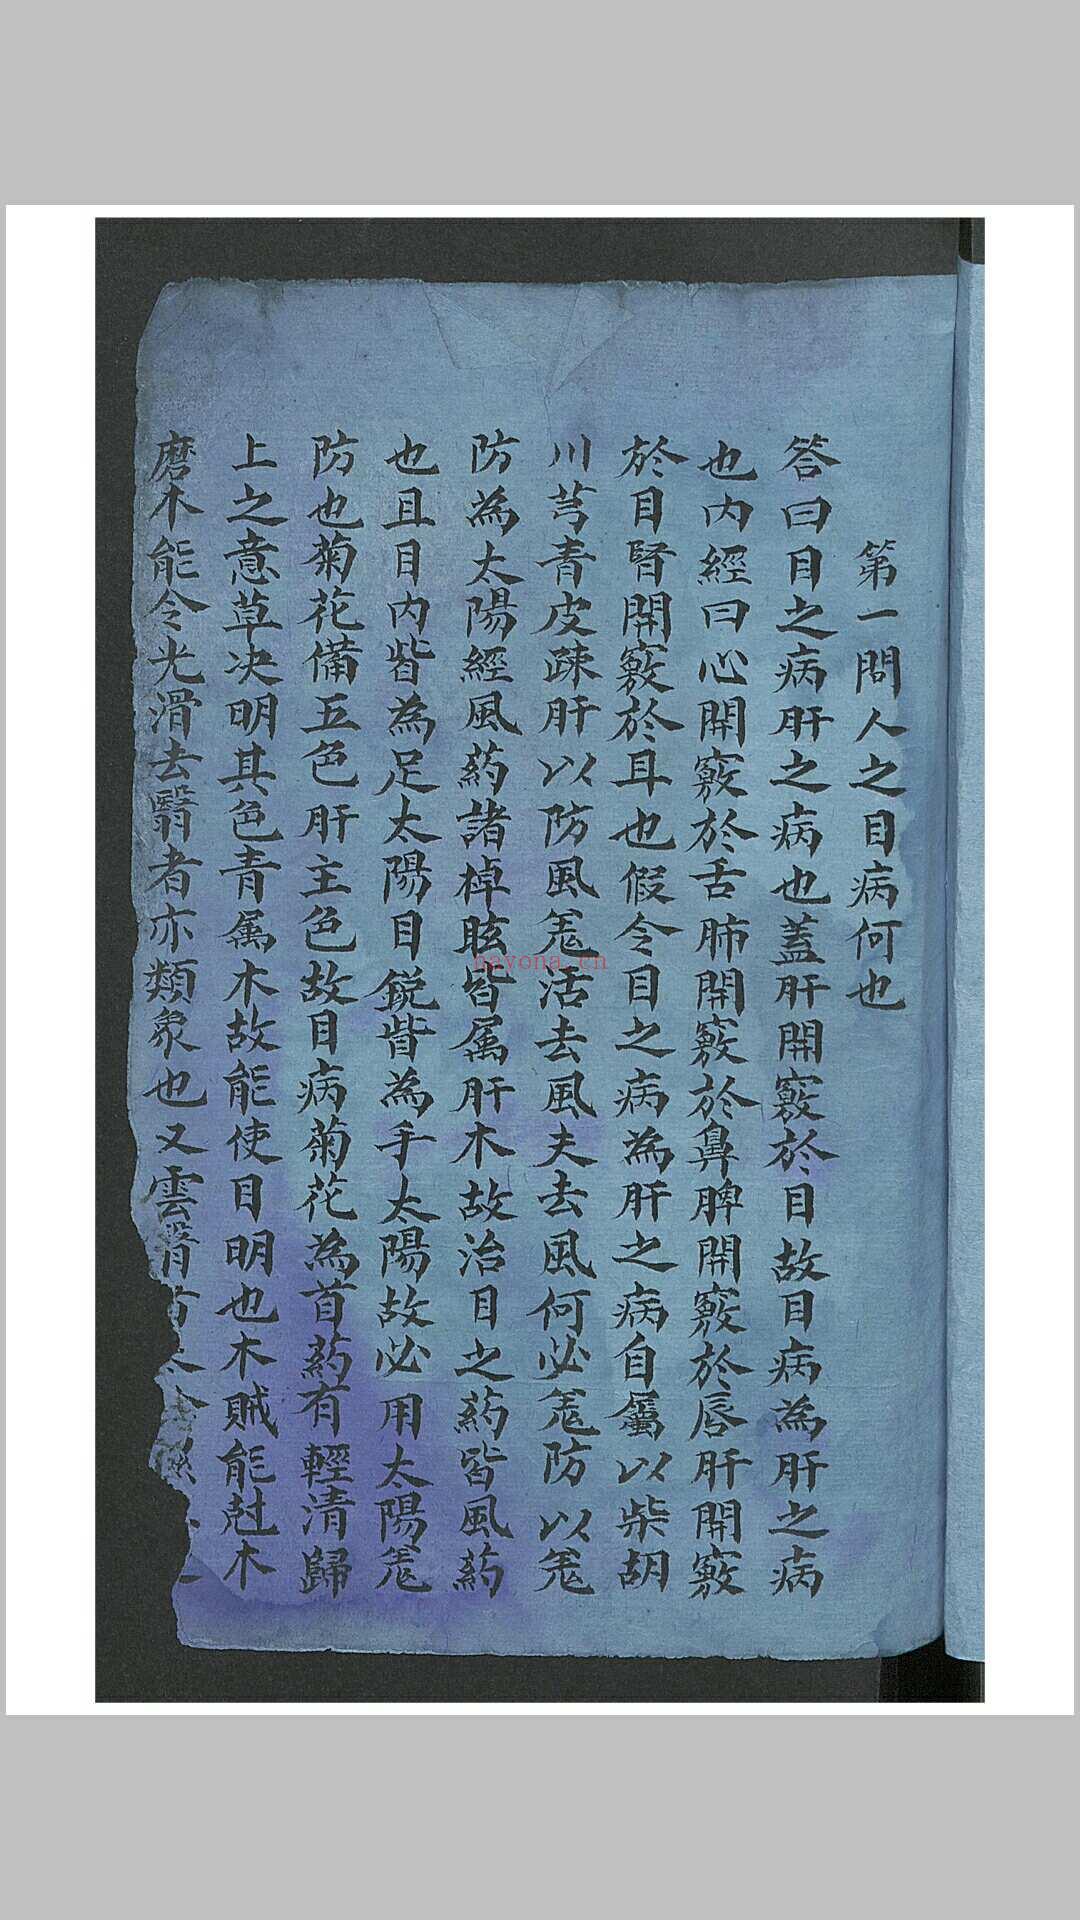 第一問人之目病何也
答曰目之病肝之病也蓋肝開竅於目故目病為肝之病
也內經曰心開竅於舌肺開竅於鼻脾開竅於唇肝開竅
於目腎開竅於耳也假令目之病為肝之病自屬以柴胡
川芎青皮疎肝以防風羗活去風夫去風何必羗防以羗
防為太陽經風药諸掉眩皆属肝木故治目之药皆風药
也且目內眥為足太陽目銳眥為手太陽故必用太陽羗
防也菊花備五色肝主色故目病菊花為首药有輕清歸
上之意草决明其色青属木故能使目明也木賊能尅木
磨木能令光滑去翳者亦類象也又雲
nayona.cn